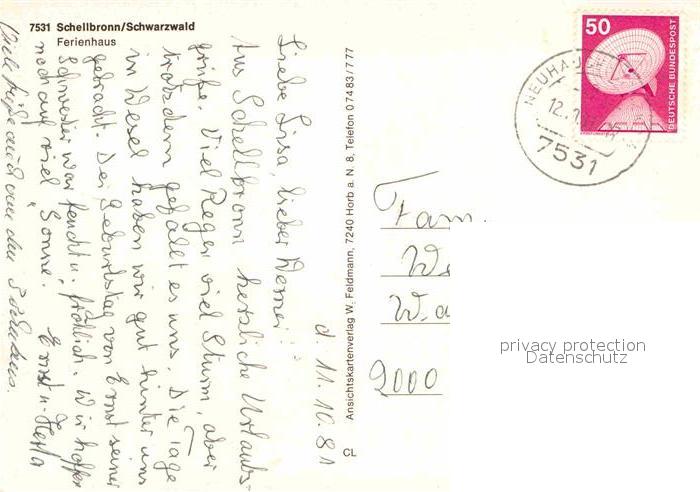 7531 Schellbronn/Schwarzwald
Ferienhaus
d. 11.10.81
Liebe Lisa, lieber Werner!
Aus Schellbronn herzliche Urlaubs-
grüße. Viel Regen viel Sturm, aber
trotzdem gefällt es uns. Die Tage
in Wesel haben wir gut hinter uns
gebracht. Der Geburtstag von Ernst seiner
Schwester war feucht u. fröhlich. Wir hoffen
noch auf viel "Sonne.
Ernst u. Herta
Viele Grüße auch von den
Ansichtskartenverlag W. Feldmann, 7240 Horb a. N. 8, Telefon 07483/777
CL
50
DEUTSCHE BUNDESPOST
NEUHAU
12.10
7531
Fam.
We
Wa
2000
privacy protection
Datenschutz